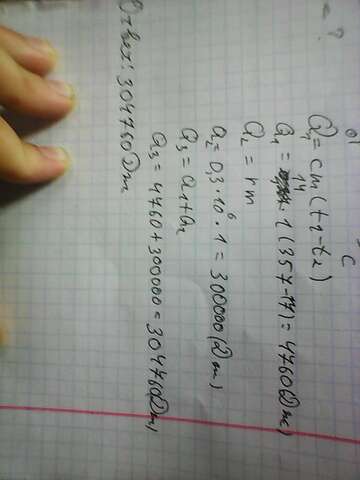 = ?
Q₁ = cm(t₂-t₂)
Q₁ = 14 · 1(357-17) = 4760(Дж)
Q₂ = rm
Q₂ = 0,3 · 10⁶ · 1 = 300000(Дж)
Q₃ = Q₁+Q₂
Q₃ = 4760+300000 = 304760(Дж)
Ответ: 304760Дж